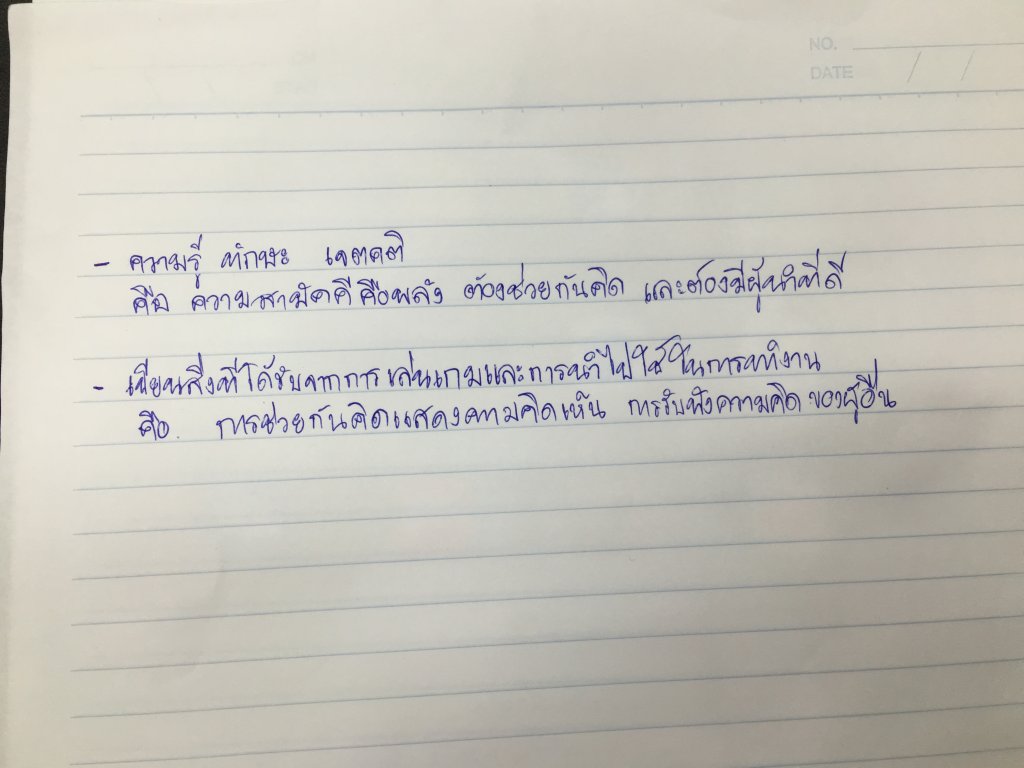 NO.
DATE / /
- ความรู้ ทักษะ เจตคติ
คือ ความสามัคคีคือพลัง ต้องช่วยกันคิด และต้องมีผู้นำที่ดี
- เขียนสิ่งที่ได้รับจากการเล่นเกมและการนำไปใช้ในการทำงาน
คือ. การช่วยกันคิดแสดงความคิดเห็น การรับฟังความคิดของผู้อื่น